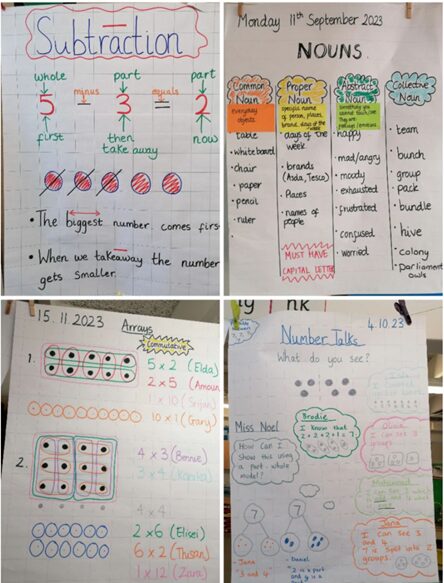 Subtraction
whole part part
minus equals
5 - 3 = 2
first then now
take away
• The biggest number comes firs
• When we takeaway the number
gets smaller.
Monday 11th September 2023
NOUNS.
Common Noun
everyday objects
table
• whiteboard
• chair
• paper
• pencil
• ruler
Proper Noun
specific name of person, places, brand, days of the week
• days of the week.
• brands (Asda, Tesco)
• Places
• names of people
MUST HAVE
CAPITAL LETTE
Abstract Noun
Something you
feelings/emotions.
happy
• mad/angry
• moody
• exhausted
• frustrated
• confused
• worried
Collective Noun
• team
• bunch
• group
• pack
• bundle
• hive
• colony
• Parliament
owls
15.11.2023 Arrays
Commutative
1.
5 x 2 (Elda)
2 x 5 (Amoun
1 x 10
10 x 1 (Gary)
2.
4 x 3 (Bonnie)
3 x 4
4 x 4
2 x 6 (Elisei)
6 x 2 (Thusan)
1 x 12 (Zara)
4.10.23
Number Talks
What do you see?
Miss Noel
How can I
show this using
a part-whole
model?
Brodie
I know that
2+2+2+1=7
Olivia
I can see 3
groups.
Mohamad
I can see
Jana
I can see 3
and 4
7 is split into 2
groups.
7
7
- Jana
"3 and 4"
- Daniel
"2 is a part
and 5 is a